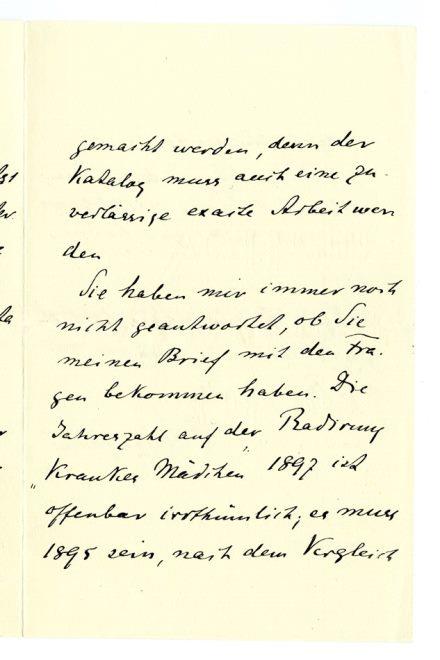 gemacht werden, denn der
Katalog muss auch eine zu-
verlässige exacte Arbeit wer
den
Sie haben mir immer noch
nicht geantwortet, ob Sie
meinen Brief mit den Fra-
gen bekommen haben. Die
Jahreszahl auf der Radirung
„Krankes Mädchen" 1897 ist
offenbar irrthümlich; es muss
1895 sein, nach dem Vergleich